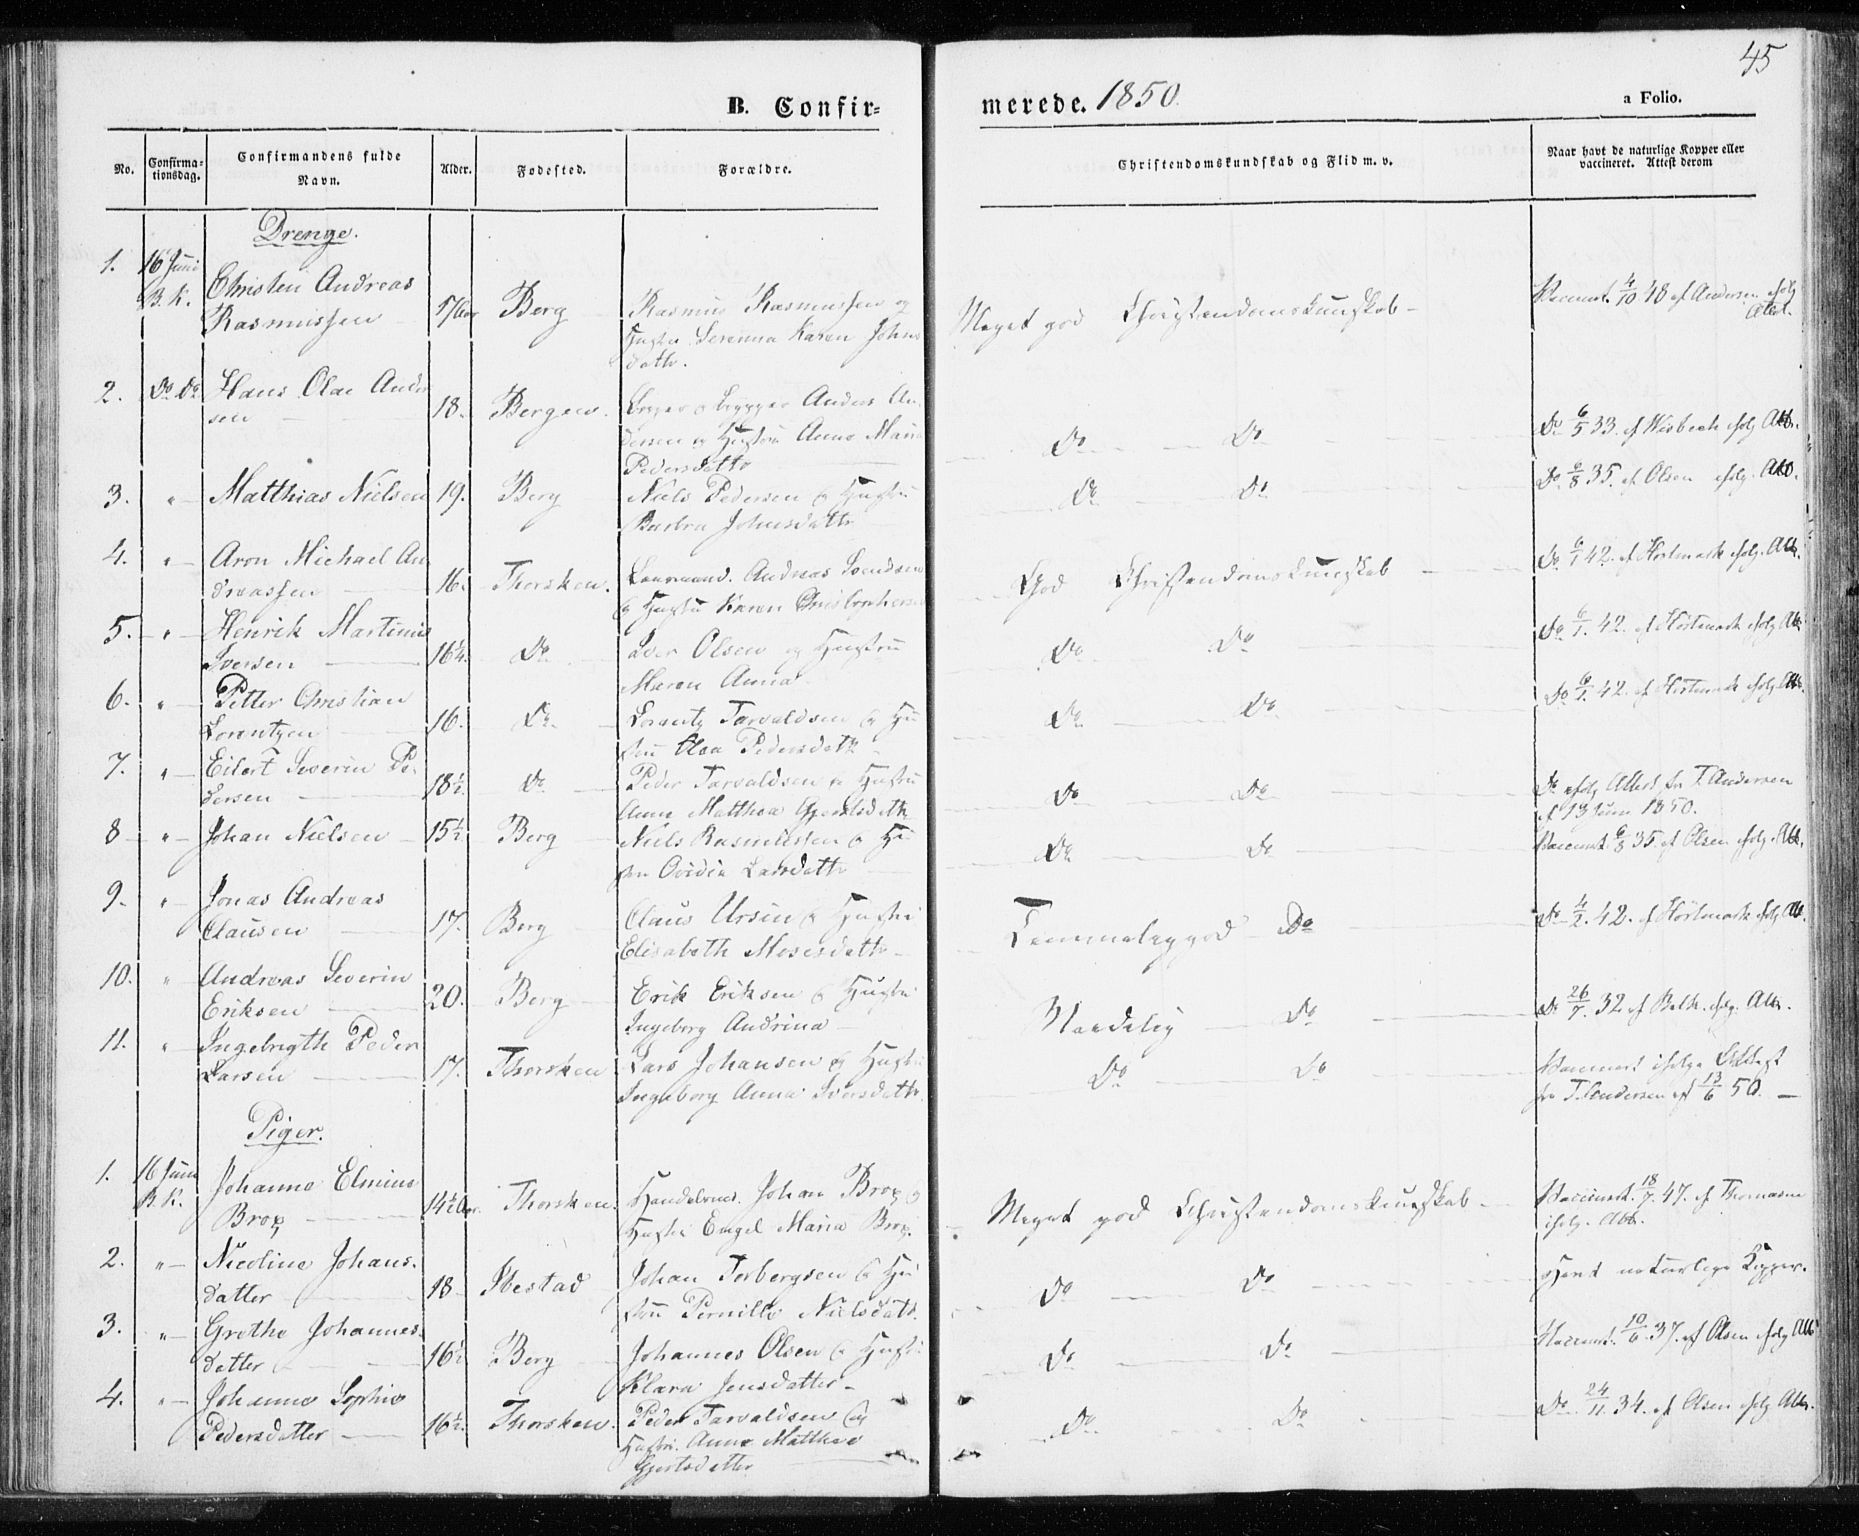 45
B. Confir=
merede. 1850.
a Folio.
No.
Confirma-
tionsdag.
Confirmandens fulde
Navn.
Alder.
Fødested.
Forældre.
Christendomskundskab og Flid m. v.
Naar havt de naturlige Kopper eller
vaccineret. Attest derom
Drenge.
1. 16 Juni Christen Andreas
B. K. Rasmussen 17 Aar Berg Rasmus Rasmussen og
Hustru Serenna Karen Johns
datter.
Meget god Christendomskundskab - Vaccinert. 4/10 48 af Andersen ifølg
Attest.
2. Do Do Hans Olai Ander
sen 18. Bergen. Anders An-
dersen og Hustru Anne Maria
Pedersdatter
Do Do Do 6/5 33. af Wisbech ifølg Att.
3. " Matthias Nielsen 19. Berg Niels Pedersen & Hustru
Barbra Johnsdatter
Do Do Do 6/8 35. af Olsen ifølg. Att.
4. " Aron Michael An
dreassen 16. Thorsken. Andreas Svendsen
& Hustru Karen Christophersd
God Christendomskundskab Do 6/1 42. af Hortmark ifølg. Att.
5. " Henrik Martinus
Iversen 16¼. Do Iver Olsen og Hustru
Maren Anna
Do Do Do 6/1. 42. af Hortmark ifølg Att
6. " Petter Christian
Lorentzen 16. Do Lorentz Torvaldsen & Hu
stru Olea Pedersdatt
Do Do Do 6/1. 42. af Hortmark ifølg Att.
7. " Eilert Severin Pe-
dersen 18½ Do Peder Torvaldsen & Hustru
Anne Matthea Gjertsdatt
Do Do Do ifølg Attest fra T. Andersen
af 13 Juni 1850.
8 " Johan Nielsen 15½ Berg Niels Rasmussen & Hu
stru Ovidia Larsdatter
Do Do Vaccinert. 6/8 35. af Olsen ifølg. Att.
9. " Jonas Andreas
Clausen 17. Berg Claus Ursin & Hustru
Elisabeth Mosesdatter
Temmelig god Do Do 4/2. 42. af Hortmark ifølg Att.
10. " Andreas Severin
Eriksen 20. Berg Erik Eriksen & Hustru
Ingeborg Andrina
Maadelig Do Do 26/7. 32. af Balk. ifølg. Att.
11. " Ingebrigth Peder
Larsen 17. Thorsken Lars Johansen & Hustru
Ingeborg Anna Iversdatter.
Do Do Vaccinert ifølge Attest
fra T. Andersen af 13/6 50.
Piger.
1. 16 Juni Johanne Elmine
B. K. Brox 14½ Aar. Thorsken Handelsm. Johan Brox &
Hustru Engel Maria Brox.
Meget god Christendomskundskab - Vaccinert. 18/7. 47. af Thomasen
ifølg. Att.
2. " Nicoline Johans-
datter 18 Ibestad Johan Torbergsen & Hu
stru Pernille Nielsdatt.
Do Do Havt naturlige Kopper.
3. " Grethe Johannes-
datter 16½ Berg Johannes Olsen & Hustru
Klara Jensdatter
Do Do Vaccinert. 10/6. 37. af Olsen ifølg Att
4. " Johanne Sophie
Pedersdatter 16½. Thorsken. Peder Torvaldsen og
Hustru. Anne Matthea
Gjertsdatter
Do Do Do 24/11. 34. af Olsen ifølg Att.